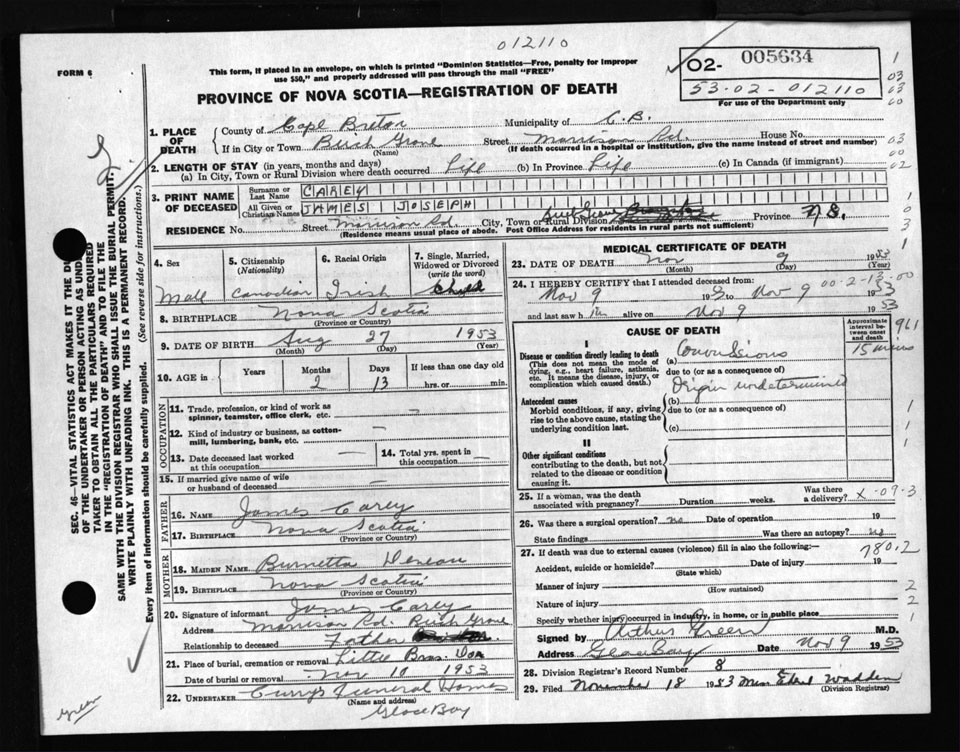 012110
FORM 6
This form, if placed in an envelope, on which is printed "Dominion Statistics—Free, penalty for improper
use $50," and properly addressed will pass through the mail "FREE"
PROVINCE OF NOVA SCOTIA—REGISTRATION OF DEATH
02- 005634
53-02-012110
For use of the Department only
1
03
03
00
03
00
02
1. PLACE OF DEATH
County of Cape Breton Municipality of C.B.
If in City or Town Birch Grove Street Morrison Rd. House No.
(Name) (If death occurred in a hospital or institution, give the name instead of street and number)
2. LENGTH OF STAY (in years, months and days)
(a) In City, Town or Rural Division where death occurred Life (b) In Province Life (c) In Canada (if immigrant)
3. PRINT NAME OF DECEASED
Surname or Last Name CAREY
All Given or Christian Names JAMES JOSEPH
RESIDENCE No. Street Morrison Rd. City, Town or Rural Division Province N.S.
(Residence means usual place of abode. Post Office Address for residents in rural parts not sufficient)
4. Sex
Male
5. Citizenship (Nationality)
Canadian
6. Racial Origin
Irish
7. Single, Married, Widowed or Divorced (write the word)
Child
8. BIRTHPLACE Nova Scotia
(Province or Country)
9. DATE OF BIRTH Aug 27 1953
(Month) (Day) (Year)
10. AGE in Years Months 2 Days 13 If less than one day old
hrs. or min.
OCCUPATION
11. Trade, profession, or kind of work as
spinner, teamster, office clerk, etc. —
12. Kind of industry or business, as cotton-
mill, lumbering, bank, etc. —
13. Date deceased last worked
at this occupation —
14. Total yrs. spent in
this occupation —
15. If married give name of wife
or husband of deceased —
FATHER
16. NAME James Carey
17. BIRTHPLACE Nova Scotia
(Province or Country)
MOTHER
18. MAIDEN NAME Burnetta
19. BIRTHPLACE Nova Scotia
(Province or Country)
20. Signature of informant James Carey
Address Morrison Rd. Birch Grove
Relationship to deceased Father
21. Place of burial, cremation or removal Little Bras D'or
Date of burial or removal Nov 10 1953
22. UNDERTAKER Curry's Funeral Homes
(Name and address)
Glace Bay
MEDICAL CERTIFICATE OF DEATH
23. DATE OF DEATH Nov 9 1953
(Month) (Day) (Year)
24. I HEREBY CERTIFY that I attended deceased from:
Nov 9 1953 to Nov 9 1953
00-2-13-00
and last saw him alive on Nov 9 1953
CAUSE OF DEATH
Approximate interval between onset and death
961
I
Disease or condition directly leading to death
(This does not mean the mode of
dying, e.g., heart failure, asthenia,
etc. It means the disease, injury, or
complication which caused death.)
(a) Convulsions 15 mins
due to (or as a consequence of)
Origin undetermined
Antecedent causes
Morbid conditions, if any, giving
rise to the above cause, stating the
underlying condition last.
(b)
due to (or as a consequence of)
(c)
II
Other significant conditions
contributing to the death, but not
related to the disease or condition
causing it.
25. If a woman, was the death
associated with pregnancy? Duration weeks. Was there a delivery? X-09-3
26. Was there a surgical operation? no Date of operation 19
State findings Was there an autopsy? no
27. If death was due to external causes (violence) fill in also the following:— 780.2
Accident, suicide or homicide? Date of injury 19
(State which)
Manner of injury 2
(How sustained)
Nature of injury 2
Specify whether injury occurred in industry, in home, or in public place
Signed by Arthur Green M.D.
Address Glace Bay Date Nov 9 1953
28. Division Registrar's Record Number 8
29. Filed November 18 1953 Miss Ethel Wadden
(Division Registrar)
SEC. 46—VITAL STATISTICS ACT MAKES IT THE DU
OF THE UNDERTAKER OR PERSON ACTING AS UND
TAKER TO OBTAIN ALL THE PARTICULARS REQUIRED
IN THE "REGISTRATION OF DEATH" AND TO FILE THE
SAME WITH THE DIVISION REGISTRAR WHO SHALL ISSUE THE BURIAL PERMIT.
WRITE PLAINLY WITH UNFADING INK. THIS IS A PERMANENT RECORD.
Every item of information should be carefully supplied. (See reverse side for instructions.)
Green